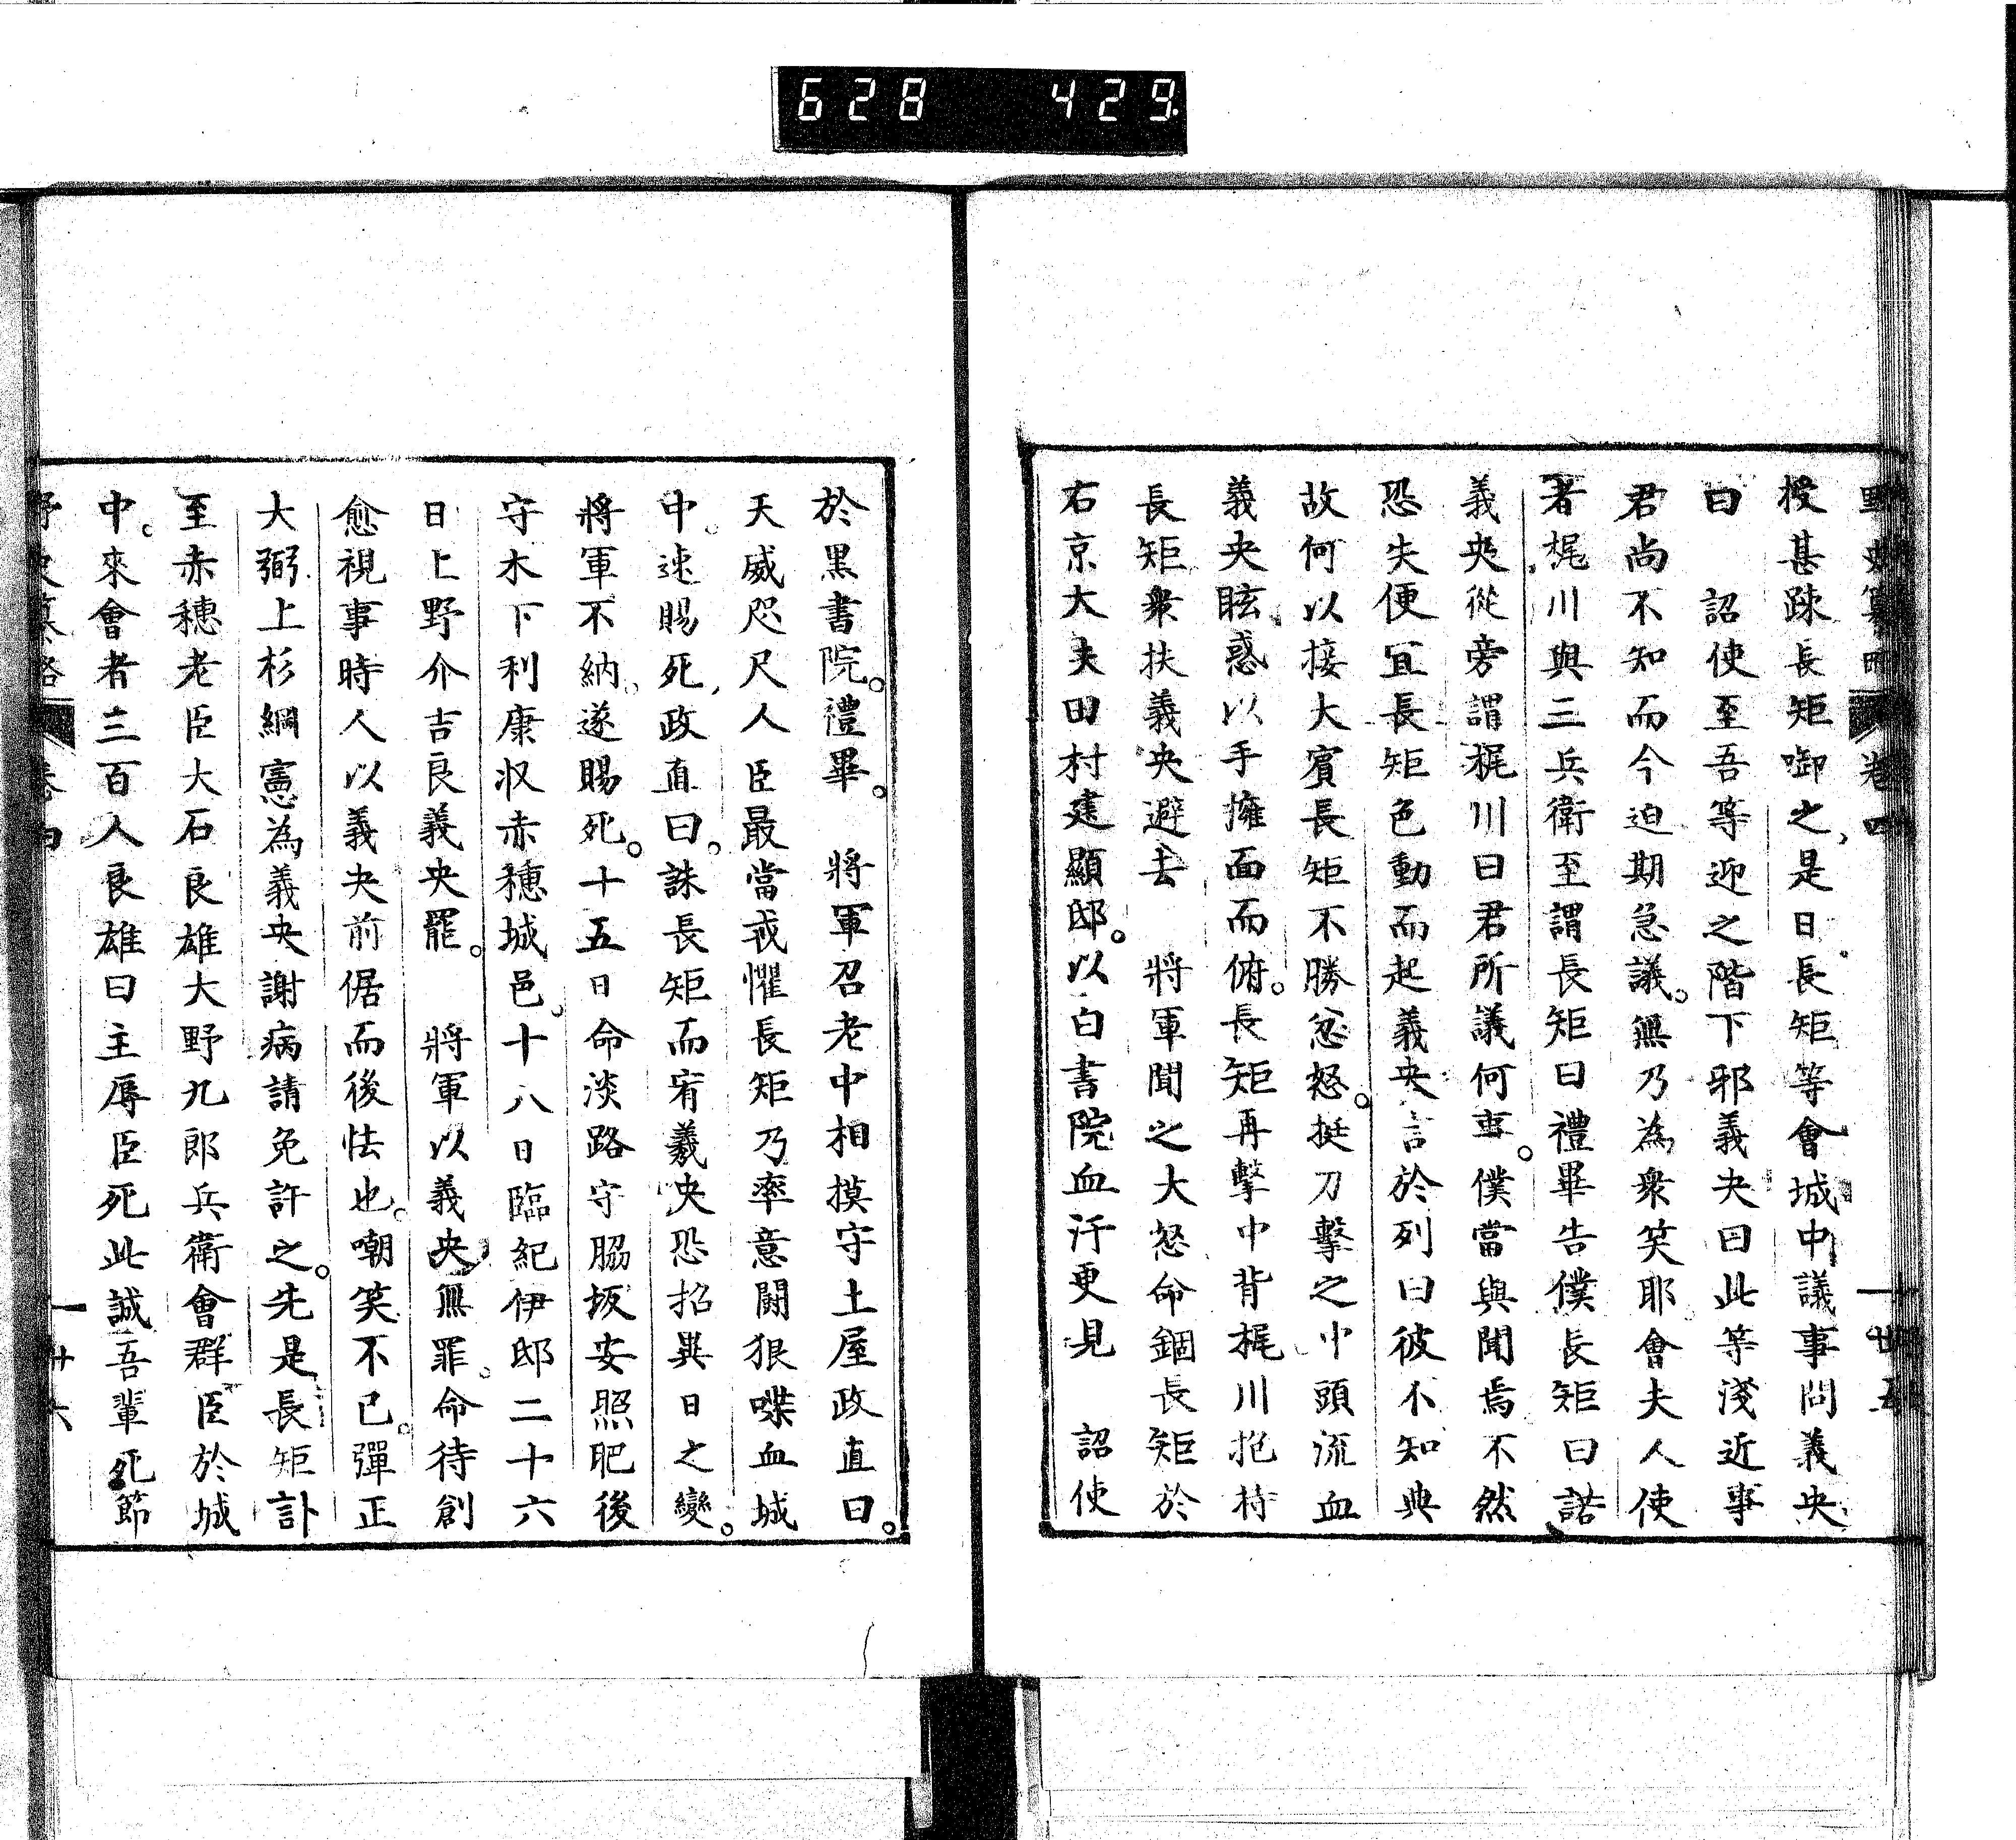 628 429
野史纂略 卷四 廿五
授甚疎長矩啣之是日長矩等會城中議事問義央
曰 詔使至吾等迎之階下邪義央曰此等淺近事
君尚不知而今迫期急議。無乃為衆笑耶會夫人使
者梶川與三兵衛至謂長矩曰禮畢告僕長矩曰諾
義央從旁謂梶川曰君所議何事。僕當與聞焉不然
恐失便宜長矩色動而起義央言於列曰彼不知典
故何以接大賓長矩不勝忿怒。挺刀擊之中頭流血
義央眩惑以手擁面而俯。長矩再擊中背梶川抱持
長矩衆扶義央避去 將軍聞之大怒命錮長矩於
右京大夫田村建顯邸。以白書院血汙更見 詔使
於黒書院。禮畢。 將軍召老中相摸守土屋政直曰。
天威咫尺人臣最當戒懼長矩乃率意鬪狠喋血城
中。速賜死、政直曰。誅長矩而宥義央恐招異日之變。
將軍不納。遂賜死。十五日命淡路守脇坂安照肥後
守木下利康収赤穗城邑。十八日臨紀伊邸二十六
日上野介吉良義央罷。 將軍以義央無罪。命待創
愈視事時人以義央前倨而後怯也。嘲笑不已。彈正
大弼上杉綱憲為義央謝病請免許之。先是長矩訃
至赤穗老臣大石良雄大野九郎兵衛會群臣於城
中。來會者三百人良雄曰主辱臣死此誠吾輩死節
野史纂略 卷四 廿六